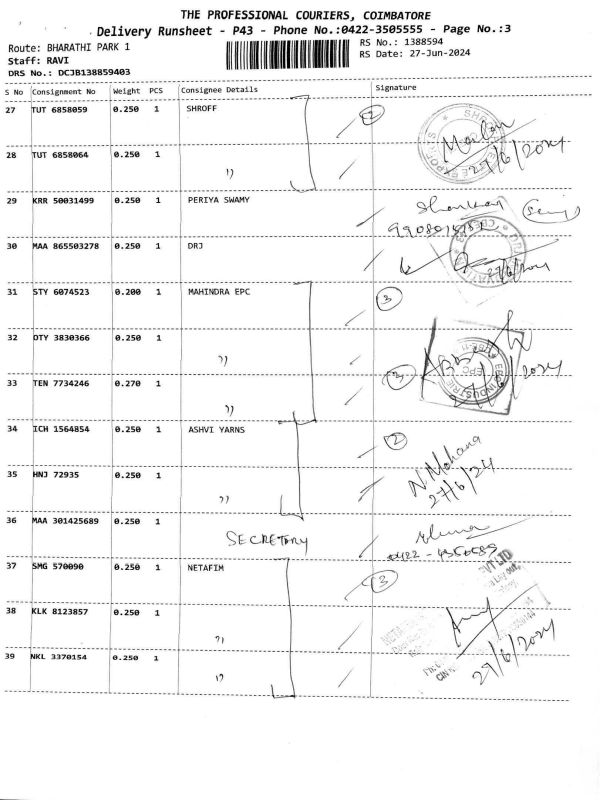 THE PROFESSIONAL COURIERS, COIMBATORE
Delivery Runsheet - P43 - Phone No.:0422-3505555 - Page No.:3
Route: BHARATHI PARK 1
RS No.: 1388594
Staff: RAVI
RS Date: 27-Jun-2024
DRS No.: DCJB138859403
S No Consignment No Weight PCS Consignee Details Signature
27 TUT 6858059 0.250 1 SHROFF 2
28 TUT 6858064 0.250 1 " 27/6/2024
29 KRR 50031499 0.250 1 PERIYA SWAMY
30 MAA 865503278 0.250 1 DRJ 27/6/2024
31 STY 6074523 0.200 1 MAHINDRA EPC 3
32 OTY 3830366 0.250 1 "
33 TEN 7734246 0.270 1 " 3
34 ICH 1564854 0.250 1 ASHVI YARNS 2
N. Mohana
35 HNJ 72935 0.250 1 " 27/6/24
36 MAA 301425689 0.250 1 SECRETORY
0422 - 4350589
37 SMG 570090 0.250 1 NETAFIM 3
38 KLK 8123857 0.250 1 "
39 NKL 3370154 0.250 1 " 27/6/2024